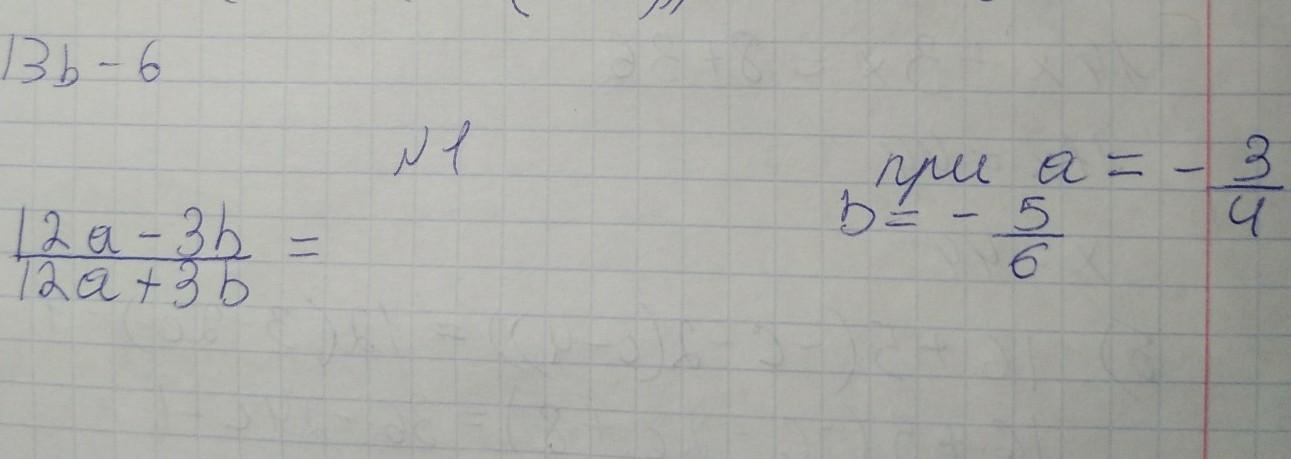 13b - 6
№1
при a = - 3/4
b = - 5/6
12a - 3b / 12a + 3b =